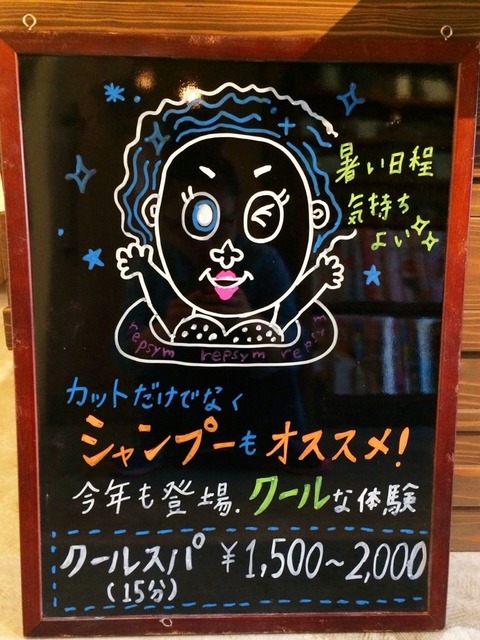 暑い日程
気持ち
よい
repsym repsym repsym
カットだけでなく
シャンプーもオススメ!
今年も登場.クールな体験
クールスパ ¥1,500~2,000
(15分)